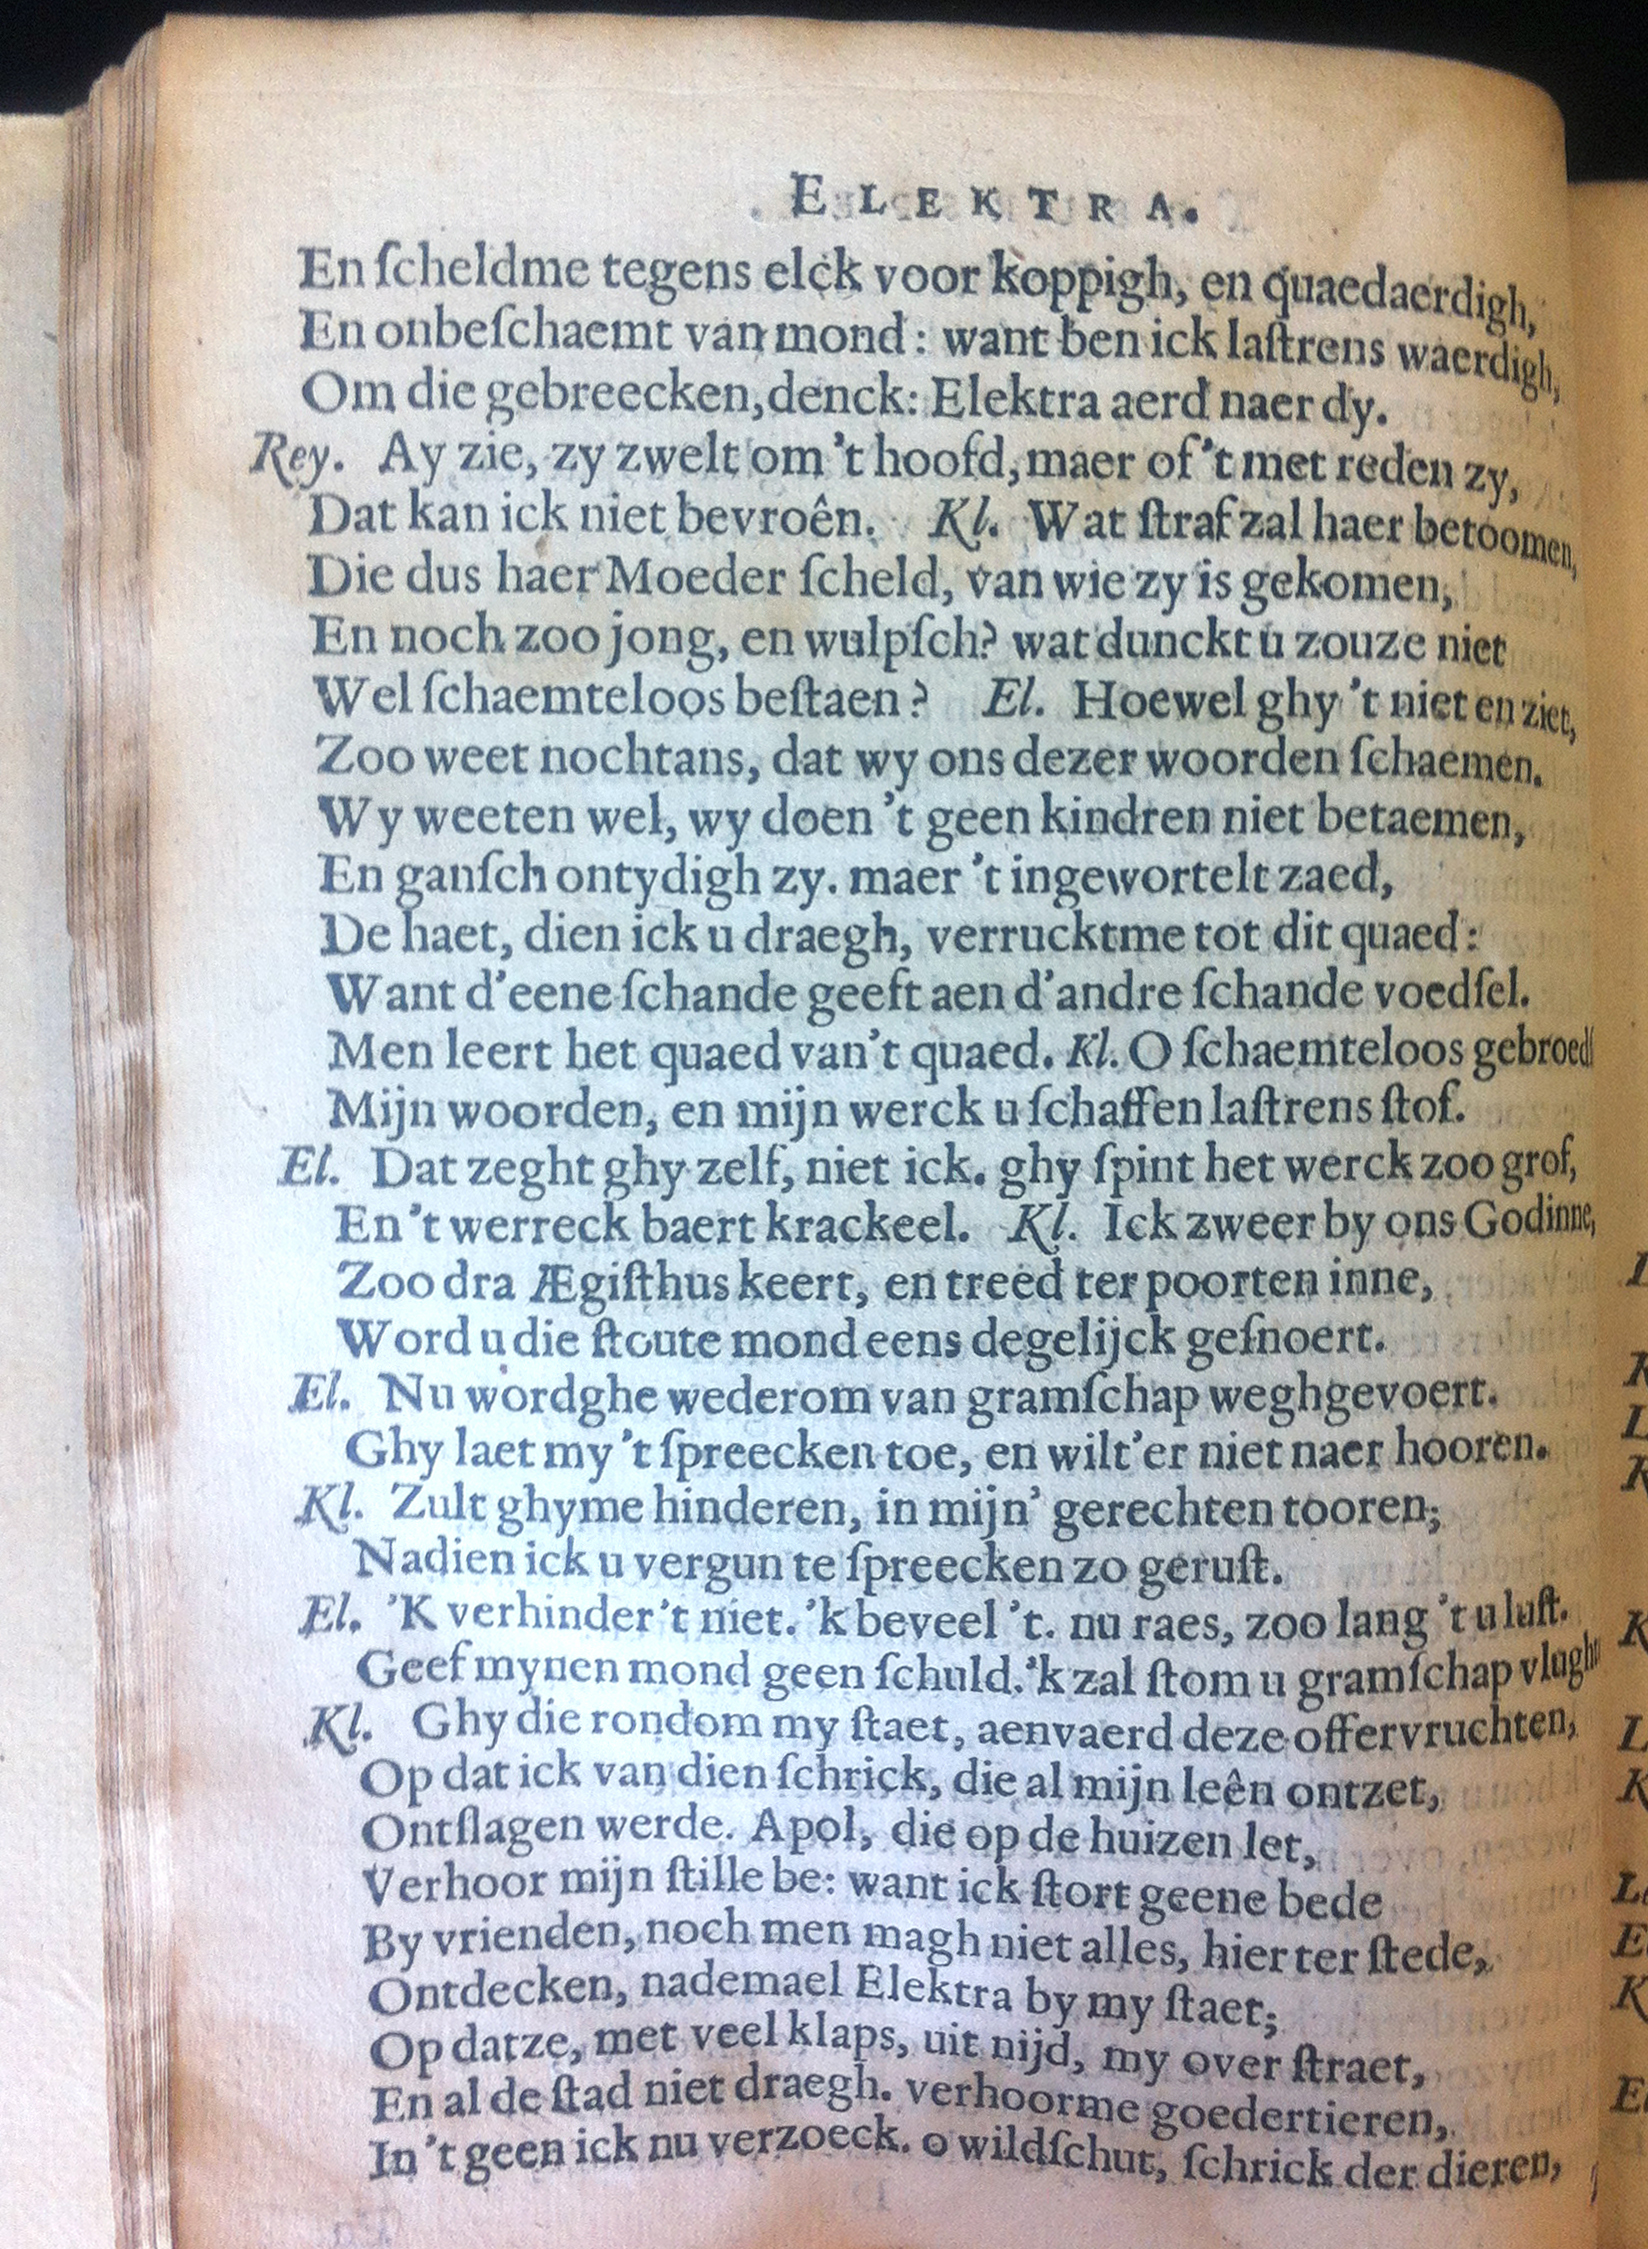 ELEKTRA.
En ſcheldme tegens elck voor koppigh, en quaedaerdigh,
En onbeſchaemt van mond: want ben ick laſtrens waerdigh,
Om die gebreecken, denck: Elektra aerd naer dy.
Rey. Ay zie, zy zwelt om 't hoofd, maer of 't met reden zy,
Dat kan ick niet bevroên. Kl. Wat ſtraf zal haer betoomen,
Die dus haer Moeder ſcheld, van wie zy is gekomen,
En noch zoo jong, en wulpſch? wat dunckt u zouze niet
Wel ſchaemteloos beſtaen? El. Hoewel ghy 't niet en ziet,
Zoo weet nochtans, dat wy ons dezer woorden ſchaemen.
Wy weeten wel, wy doen 't geen kindren niet betaemen,
En ganſch ontydigh zy. maer 't ingewortelt zaed,
De haet, dien ick u draegh, verrucktme tot dit quaed:
Want d'eene ſchande geeft aen d'andre ſchande voedſel.
Men leert het quaed van't quaed. Kl. O ſchaemteloos gebroed
Mijn woorden, en mijn werck u ſchaffen laſtrens ſtof.
El. Dat zeght ghy zelf, niet ick. ghy ſpint het werck zoo grof,
En 't werreck baert krackeel. Kl. Ick zweer by ons Godinne,
Zoo dra Ægiſthus keert, en treed ter poorten inne,
Word u die ſtoute mond eens degelijck geſnoert.
El. Nu wordghe wederom van gramſchap weghgevoert.
Ghy laet my 't ſpreecken toe, en wilt'er niet naer hooren.
Kl. Zult ghyme hinderen, in mijn' gerechten tooren;
Nadien ick u vergun te ſpreecken zo geruſt.
El. 'K verhinder't niet. 'k beveel 't. nu raes, zoo lang 't u luſt.
Geef mynen mond geen ſchuld. 'k zal ſtom u gramſchap vlugh
Kl. Ghy die rondom my ſtaet, aenvaerd deze offervruchten,
Op dat ick van dien ſchrick, die al mijn leên ontzet,
Ontſlagen werde. Apol, die op de huizen let,
Verhoor mijn ſtille be: want ick ſtort geene bede
By vrienden, noch men magh niet alles, hier ter ſtede,
Ontdecken, nademael Elektra by my ſtaet;
Op datze, met veel klaps, uit nijd, my over ſtraet,
En al de ſtad niet draegh. verhoorme goedertieren,
In 't geen ick nu verzoeck. o wildſchut, ſchrick der dieren,